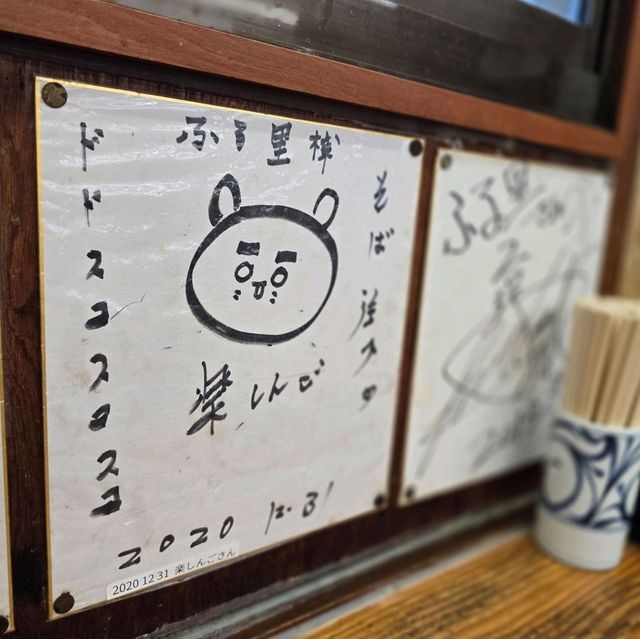 ふる里様
そば 注入
ドドスコスコスコ
楽しんご
2020 12.31
2020 12 31 楽しんごさん
ふる里